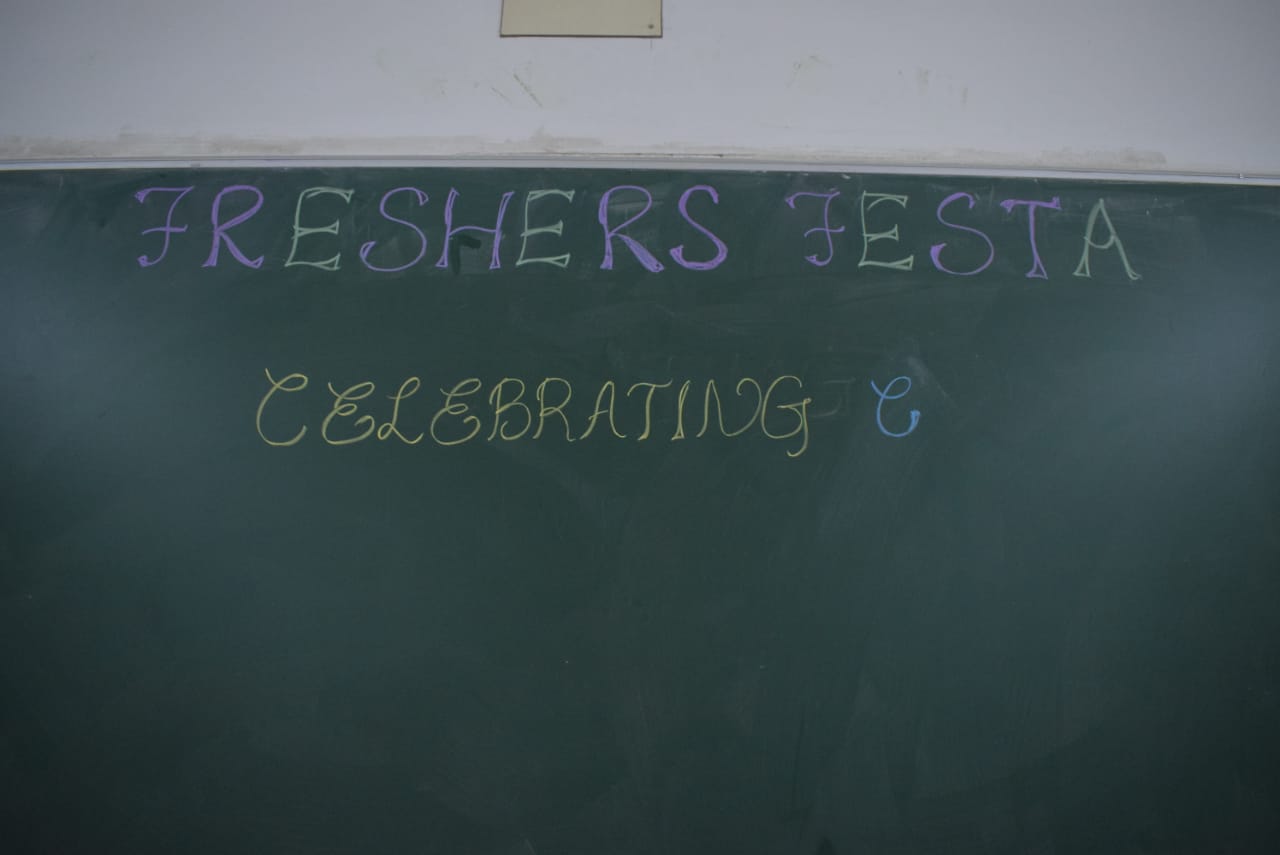 FRESHERS FESTA
CELEBRATING C